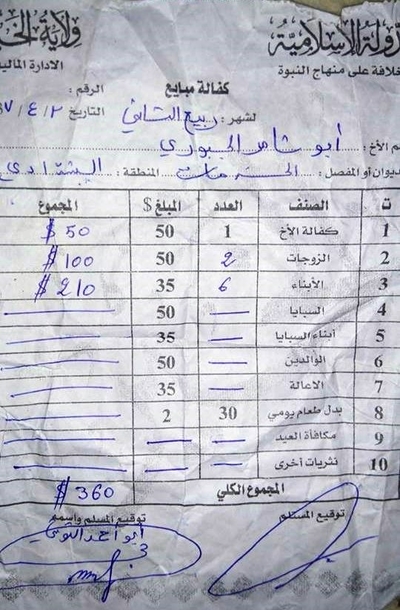 دولة الإسلامية ولاية الخ
خلافة على منهاج النبوة الادارة المالية
كفالة مبايع الرقم :
لشهر : ربيع الثاني التاريخ ٢ / ٤ /
م الأخ : أبو شاهر الجبوري
ديوان أو المفصل : الخدمات المنطقة :
ت الصنف العدد المبلغ $ المجموع
1 كفالة الأخ 1 50 $ 50
2 الزوجات 2 50 $ 100
3 الأبناء 6 35 $ 210
4 السبايا — 50 —
5 أبناء السبايا — 35 —
6 الوالدين — 50 —
7 الاعالة — 35 —
8 بدل طعام يومي 30 2 —
9 مكافأة العيد — — —
10 نثريات أخرى — — —
المجموع الكلي $ 360
توقيع المسلم توقيع المستلم واسمه
أبو أحمد